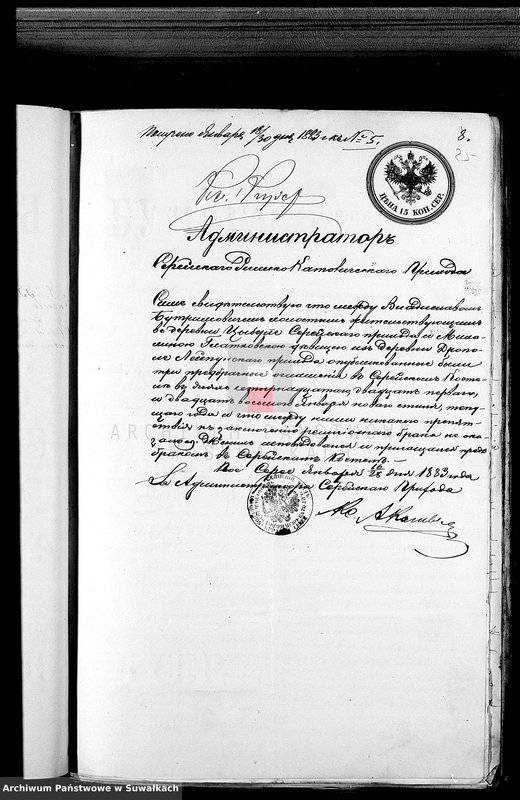 Получено Января 18/30 дня 1883 г. къ № 5.
8.
25-
ЦѢНА 15 КОП. СЕР.
Кс.
Администраторъ
Серейскаго Римско Католическаго Прихода
Симъ свидѣтельствую что между Владиславомъ
Бутримовичемъ холостякомъ жительствующимъ
въ деревни Серейскаго прихода и Миха-
линою Гнатковскою дѣвицею изъ деревни
Лейпунскаго прихода опубликованные были
три предбрачные оглашенія въ Серейскомъ Косте-
лѣ въ дняхъ четырнадцатаго, двадцать перваго,
и двадцать восьмаго Января новаго стиля, теку-
щаго года и что между ними никакого препят-
ствія къ заключенію религіознаго брака не ока-
залось. исповѣдовался и пріобщался предъ
бракомъ въ Серейскимъ Костелѣ.—
Пос. Серее Января 16/28 дня 1883 года
За Администратора Серейскаго Прихода
Кс.
ARCH
Archiwum Państwowe w Suwałkach